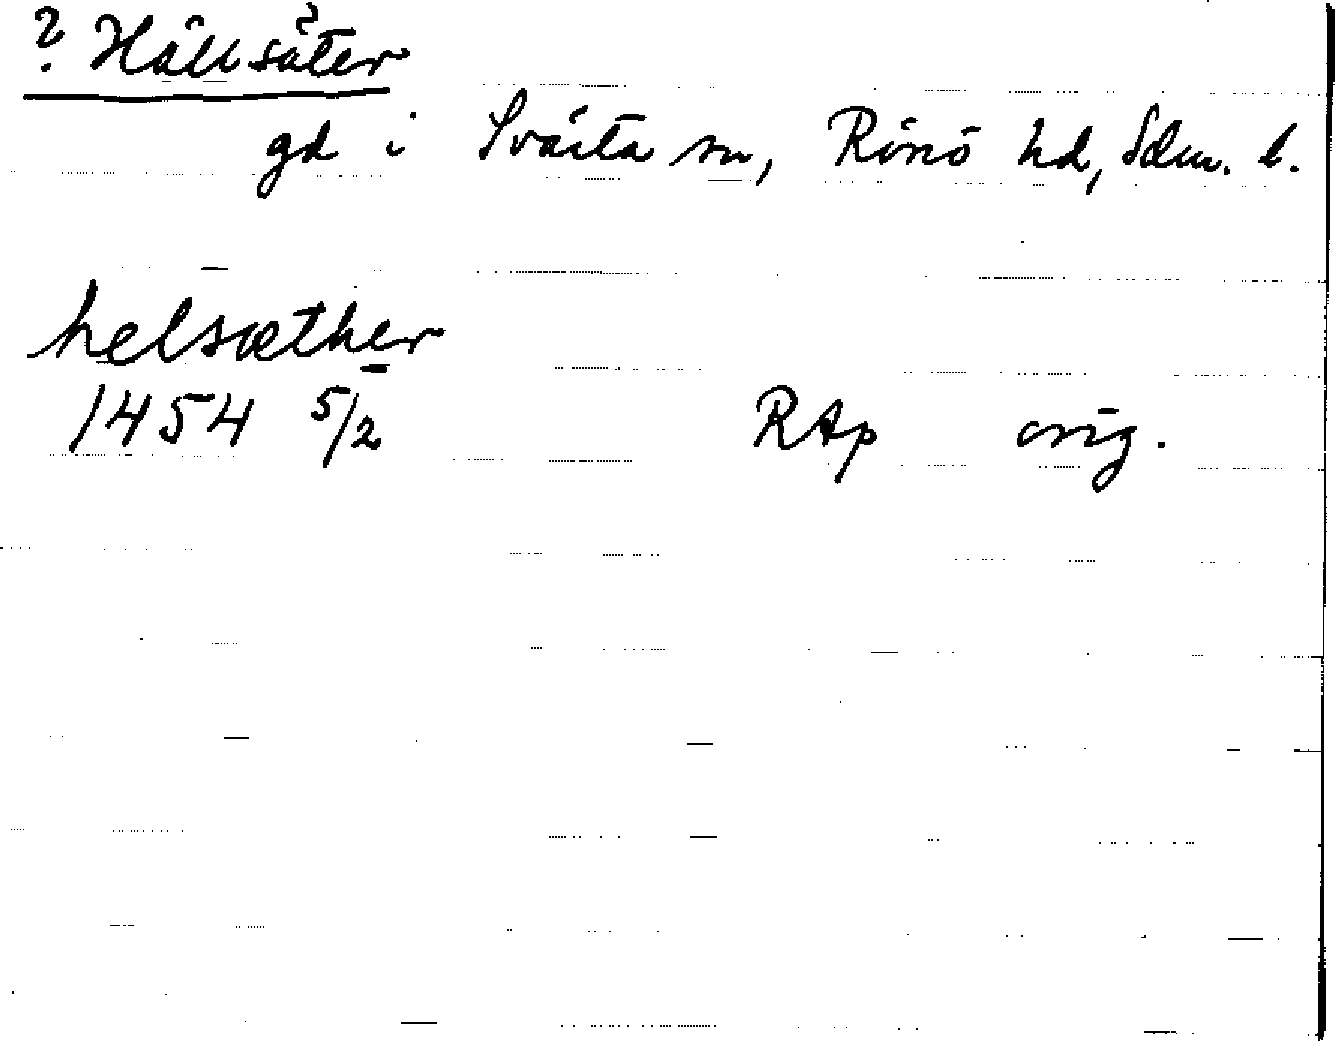 ? Hällsäter
gd i Svärta sn, Rönö hd, Sdm. l.
helsæther
1454 5/2 RAp orig.